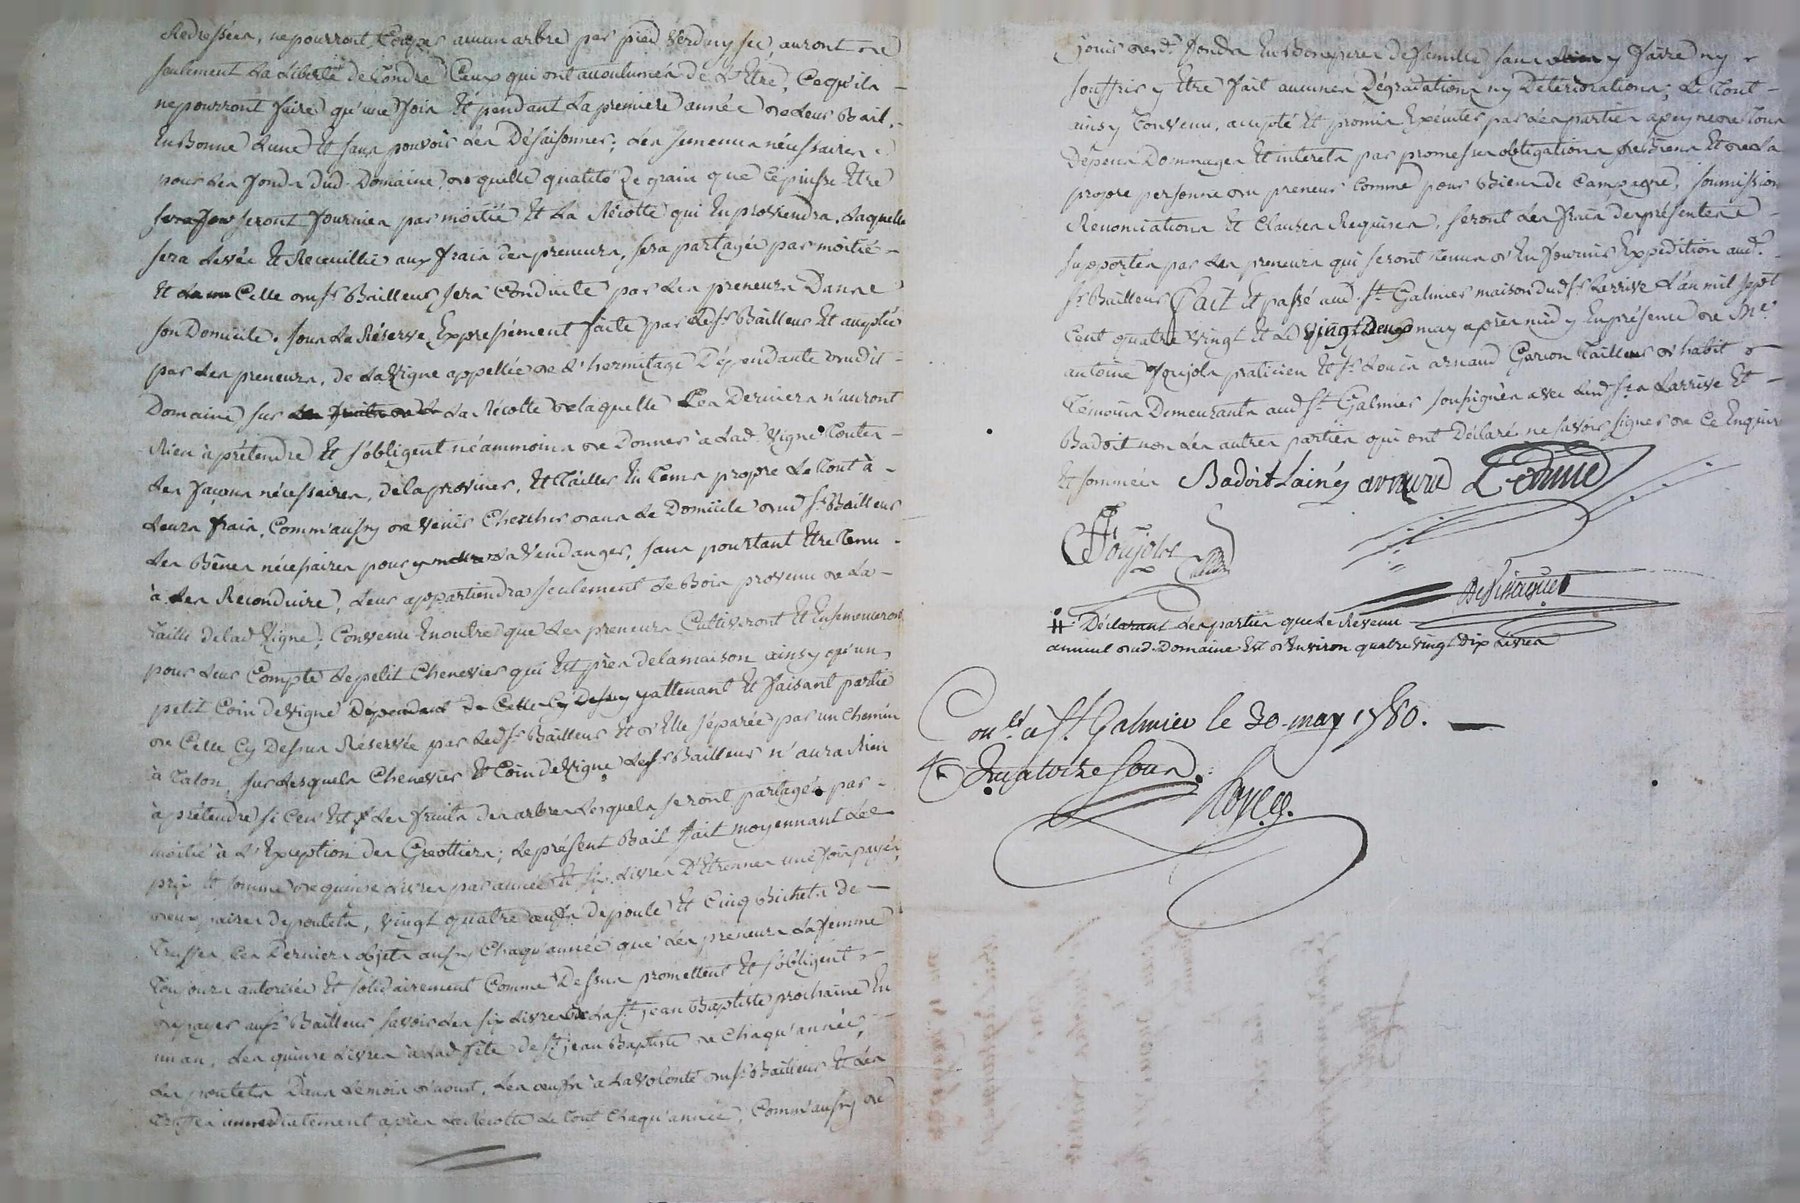 Redressées, ne pourront Couper aucun arbre par pied verd ny sec, auront
seulement La Liberté de Tondre Ceux qui ont accoutumés de L'Etre, Ce qu'ils
ne pourront faire qu'une fois Et pendant La premiere année de Leur Bail,
En Bonne Lune Et sans pouvoir Les Désaisonner; Les semences nécessaires
pour Les fonds dud. Domaine, de quelle qualité de grain que Ce puisse Etre
seront fournies par moitié Et La Récolte qui En proviendra, Laquelle
sera Levée Et Recueillie aux frais des preneurs, sera partagée par moitié
Et Celle dud. sr. Bailleur sera Conduite par Les preneurs Dans
son Domicile. sous La Réserve Expressément faite par Led. sr. Bailleur Et acceptée
par Les preneurs, de La Vigne appellée de L'hermitage Dépendante dudit
Domaine, sur La Récolte de laquelle Ces Derniers n'auront
Rien à prétendre Et s'obligent néammoins de Donner à Lad. Vigne Toutes
Les façons nécessaires, de la proviner, Et Tailler En Tems propre Le Tout à
Leurs frais, Comm'aussy de venir Chercher dans Le Domicile dud. sr. Bailleur
Les Bênes nécessaires pour y vendanger, sans pourtant Etre Tenu
à Les Reconduire, Leur appartiendra seulement Le Bois provenu de La
Taille de lad. Vigne; Convenu En outre que Les preneurs Cultiveront Et Ensemenceront
pour Leur Compte Le petit Chenevier qui Est près de la maison ainsy qu'un
petit Coin de Vigne y attenant Et faisant partie
de Celle Cy Dessus Réservée par Led. sr. Bailleur Et d'Elle séparée par un Chemin
à Talon, sur Lesquels Chenevier Et Coin de Vigne Led. sr. Bailleur n'aura Rien
à prétendre si Ce n'Est Les fruits des arbres Lesquels seront partagés par
moitié à L'Exception des Greottiers; Le présent Bail fait moyennant Le
prix Et somme de quinze Livres par année Et six Livres D'Etrennes une fois payés,
deux paires de poulets, vingt quatre œufs de poule Et Cinq Bichets de
Truffes Ces Derniers objets aussy Chaqu'année que Les preneurs La femme
Toujours autorisée Et solidairement Comme Dessus promettent Et s'obligent
de payer aud. sr. Bailleur savoir Les six Livres à La st. jean Baptiste prochaine En
un an, Les quinze Livres à Lad. fête de st. jean Baptiste de Chaqu'année,
Les poulets Dans Le mois d'aoust, Les œufs à La Volonté dud. sr. Bailleur Et Les
Truffes immediatement après La Récolte Le Tout Chaqu'année, Comm'aussy de
Jouir desd. fonds En Bons peres de famille sans y faire ny
souffrir y Etre fait aucunes Dégradations ny Détériorations; Le Tout
ainsy Convenu, accepté Et promis Exécuter par Les parties a peyne de Tous
Dépens Dommages Et interets par promesses obligations de Biens Et de La
propre personne du preneur Comme pour Baux de Campagne, soumissions
Renonciations Et Clauses Requises, seront Les frais des présentes
supportés par Les preneurs qui seront Tenus d'En fournir Expédition aud.
sr. Bailleur. Fait Et passé aud. st. Galmier maison dud. sr. Larrive L'an mil sept
Cent quatre vingt Et Le Vingt Deux may après midy En présence de Me.
antoine Joujols praticien Et sr. Louis arnaud Garçon Tailleur d'habit
Témoins Demeurants aud. st. Galmier soussignés avec Led. sr. Larrive Et
Badoit non Les autres parties qui ont Déclaré ne savoir signer de Ce Enquis
Et sommés Badoit Lainé arnaud
Joujols
# Déclarant Les parties que Le Revenu
annuel dud. Domaine Est d'Environ quatre vingt Dix Livres
Conlé à St. Galmier le 30 may 1780.
Quatorze sous.